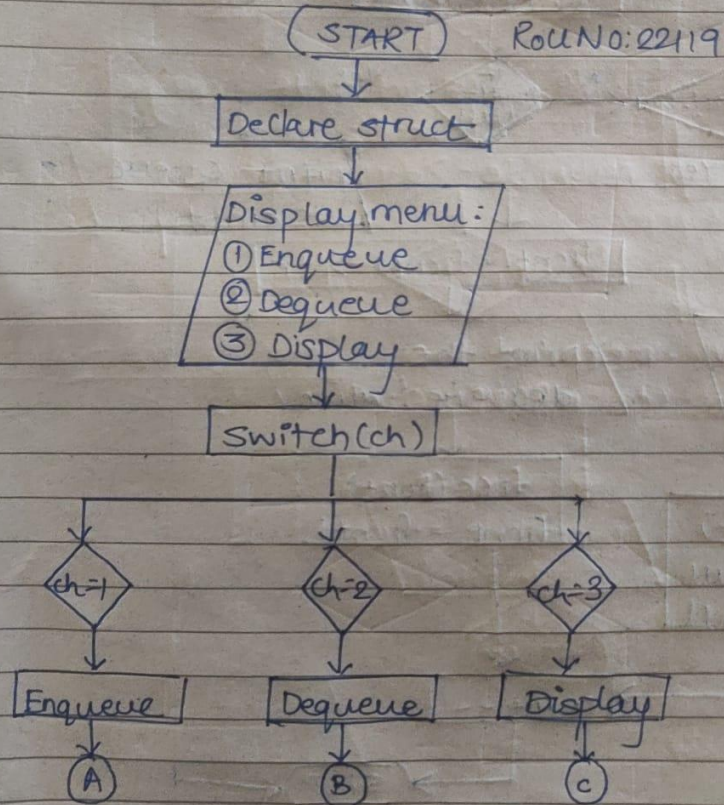 START RollNo:22119
Declare struct
Display menu:
① Enqueue
② Dequeue
③ Display
Switch(ch)
ch=1 ch=2 ch=3
Enqueue Dequeue Display
A B C